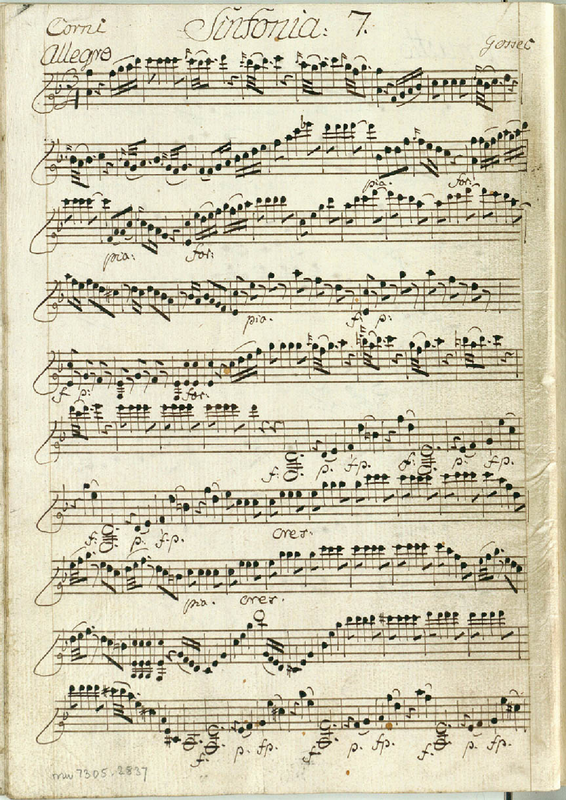 Corni Sinfonia: 7.
Allegro
pia. for:
pia: for:
pia. f. p:
f. p: for.
f: p. fp. f: p: fp.
f: p: f.p. cres.
pia. cres.
f. p. fp. f. p. fp. f. p. fp.